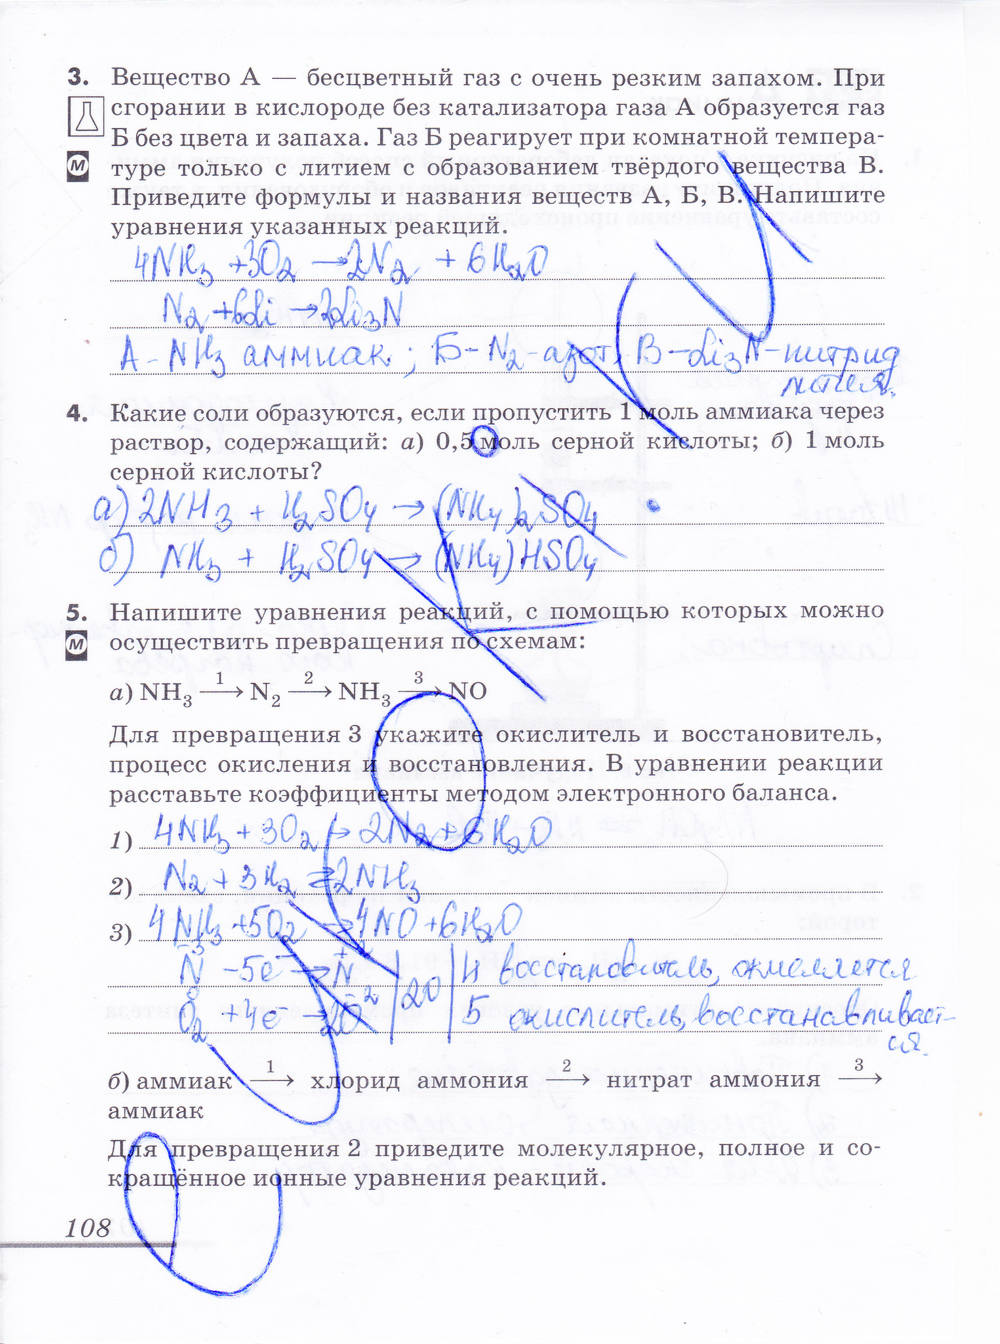 3. Вещество А — бесцветный газ с очень резким запахом. При
сгорании в кислороде без катализатора газа А образуется газ
Б без цвета и запаха. Газ Б реагирует при комнатной темпера-
туре только с литием с образованием твёрдого вещества В.
Приведите формулы и названия веществ А, Б, В. Напишите
уравнения указанных реакций.
4NH3 + 3O2 → 2N2 + 6H2O
N2 + 6Li → 2Li3N
А - NH3 аммиак; Б - N2 - азот, В - Li3N - нитрид
лития.
4. Какие соли образуются, если пропустить 1 моль аммиака через
раствор, содержащий: а) 0,5 моль серной кислоты; б) 1 моль
серной кислоты?
а) 2NH3 + H2SO4 → (NH4)2SO4
б) NH3 + H2SO4 → (NH4)HSO4
5. Напишите уравнения реакций, с помощью которых можно
осуществить превращения по схемам:
а) NH3 —1→ N2 —2→ NH3 —3→ NO
Для превращения 3 укажите окислитель и восстановитель,
процесс окисления и восстановления. В уравнении реакции
расставьте коэффициенты методом электронного баланса.
1) 4NH3 + 3O2 → 2N2 + 6H2O
2) N2 + 3H2 ⇄ 2NH3
3) 4NH3 + 5O2 → 4NO + 6H2O
N⁻³ - 5e⁻ → N⁺² | 20 | 4 восстановитель, окисляется
O2⁰ + 4e⁻ → 2O⁻² 5 окислитель, восстанавливает-
ся.
б) аммиак —1→ хлорид аммония —2→ нитрат аммония —3→
аммиак
Для превращения 2 приведите молекулярное, полное и со-
кращённое ионные уравнения реакций.
108